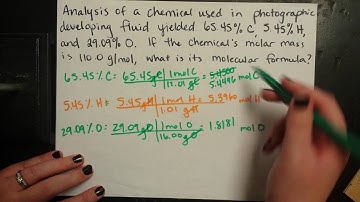 Analysis of a chemical used in photographic
developing fluid yielded 65.45% C, 5.45% H,
and 29.09% O. If the chemical's molar mass
is 110.0 g/mol, what is its molecular formula?
65.45% C = 65.45gC | 1mol C / 12.01 gC = 5.4500 5.4496 mol C
5.45% H = 5.45gH | 1 mol H / 1.01 gH = 5.3960 mol
29.09% O = 29.09gO | 1mol O / 16.00gO = 1.8181 mol O